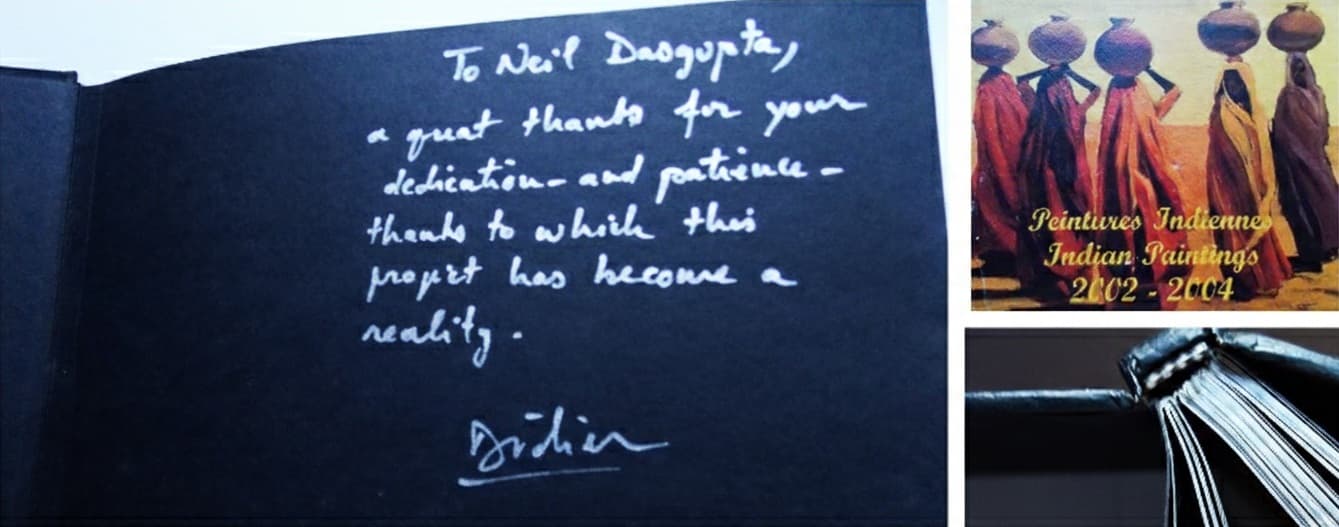 To Neil Dasgupta,
a great thanks for your
dedication - and patience -
thanks to which this
project has become a
reality.
Didier
Peintures Indiennes
Indian Paintings
2002 - 2004